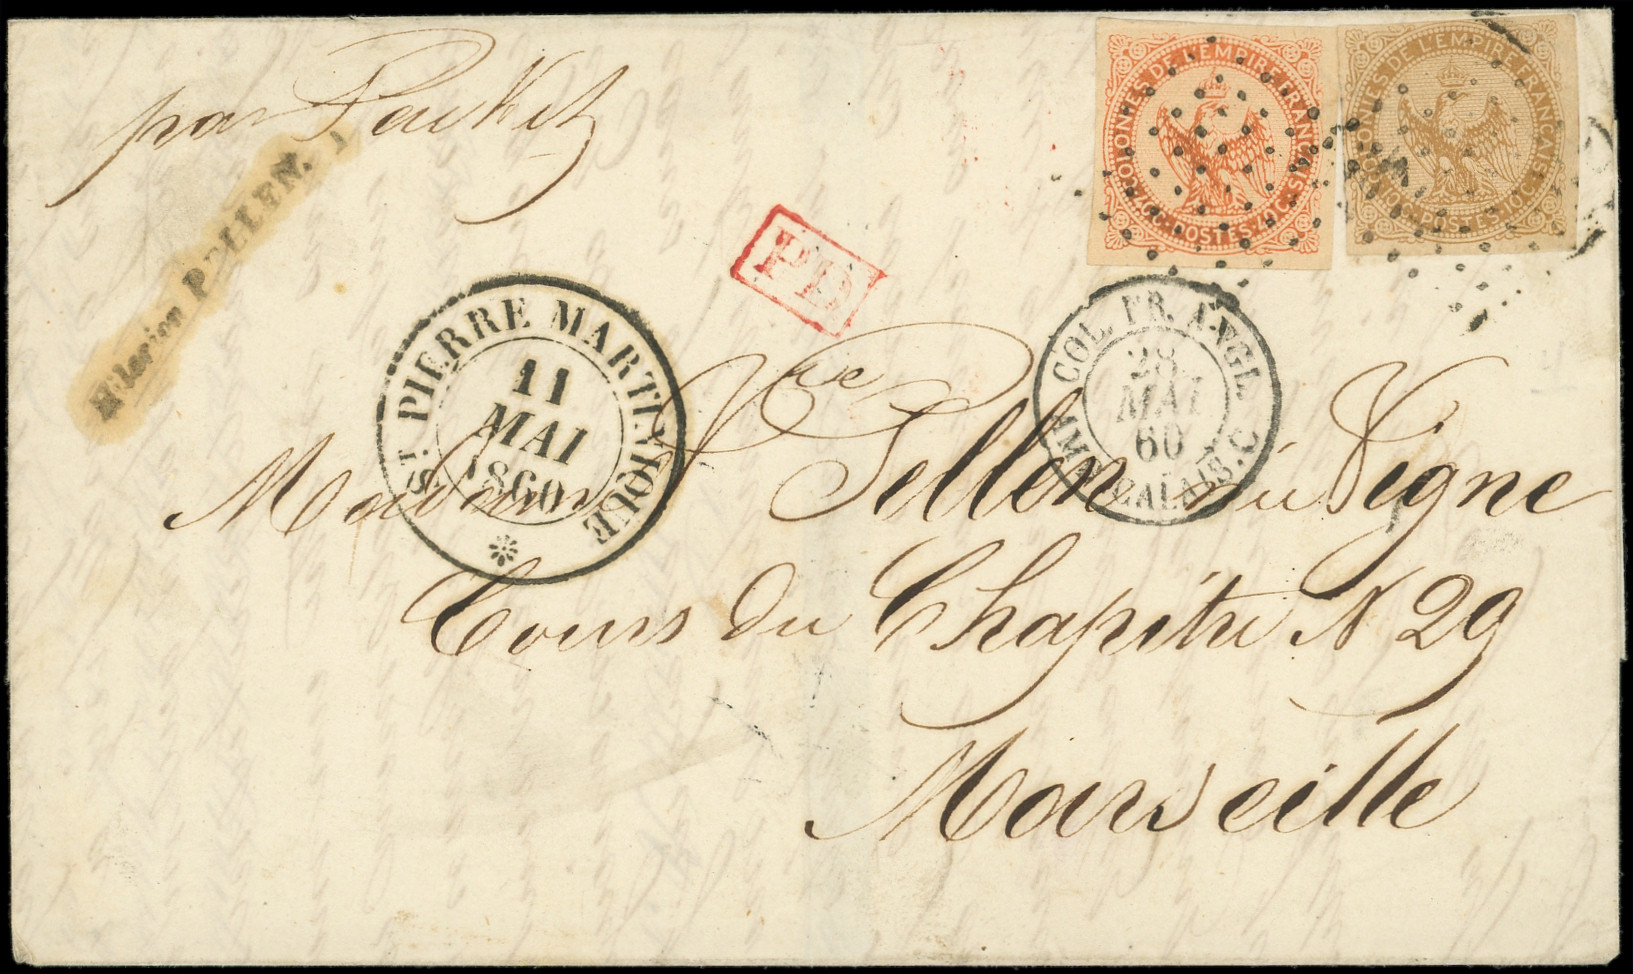 par Packet
Mlle Florion PELLEN.
COLONIES DE L'EMPIRE FRANÇAIS
40C. POSTES. 40C.
COLONIES DE L'EMPIRE FRANÇAIS
10C. POSTES. 10C.
PD
ST. PIERRE MARTINIQUE
11
MAI
1860
COL. FR. ANGL.
28
MAI
60
AMB. CALAIS. C
Madame Vve Pellen née Vigne
Cours du Chapitre N 29
Marseille